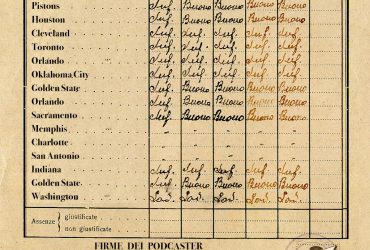 Pistons Suf. Buono Buono Buono Buono
Houston Suf. Buono Suf. Buono Suf.
Cleveland Suf. Suf. Suf. Suf. Suf.
Toronto Suf. Suf. Suf. Suf. Suf.
Orlando Suf. Suf. Suf. Suf. Suf.
Oklahoma City Suf. Suf. Suf. Suf. Suf.
Golden State Suf. Buono Buono Buono Buono
Orlando Suf. Buono Buono Buono Buono
Sacramento Suf. Buono Buono Buono Buono
Memphis " " " " "
Charlotte " " " " "
San Antonio " " " " "
Indiana Suf. Suf. Suf. Suf. Suf.
Golden State Suf. Buono Suf. Buono Buono
Washington Lod. Lod. Lod. Lod. Lod.
Assenze giustificate
non giustificate
FIRME DEI PODCASTER